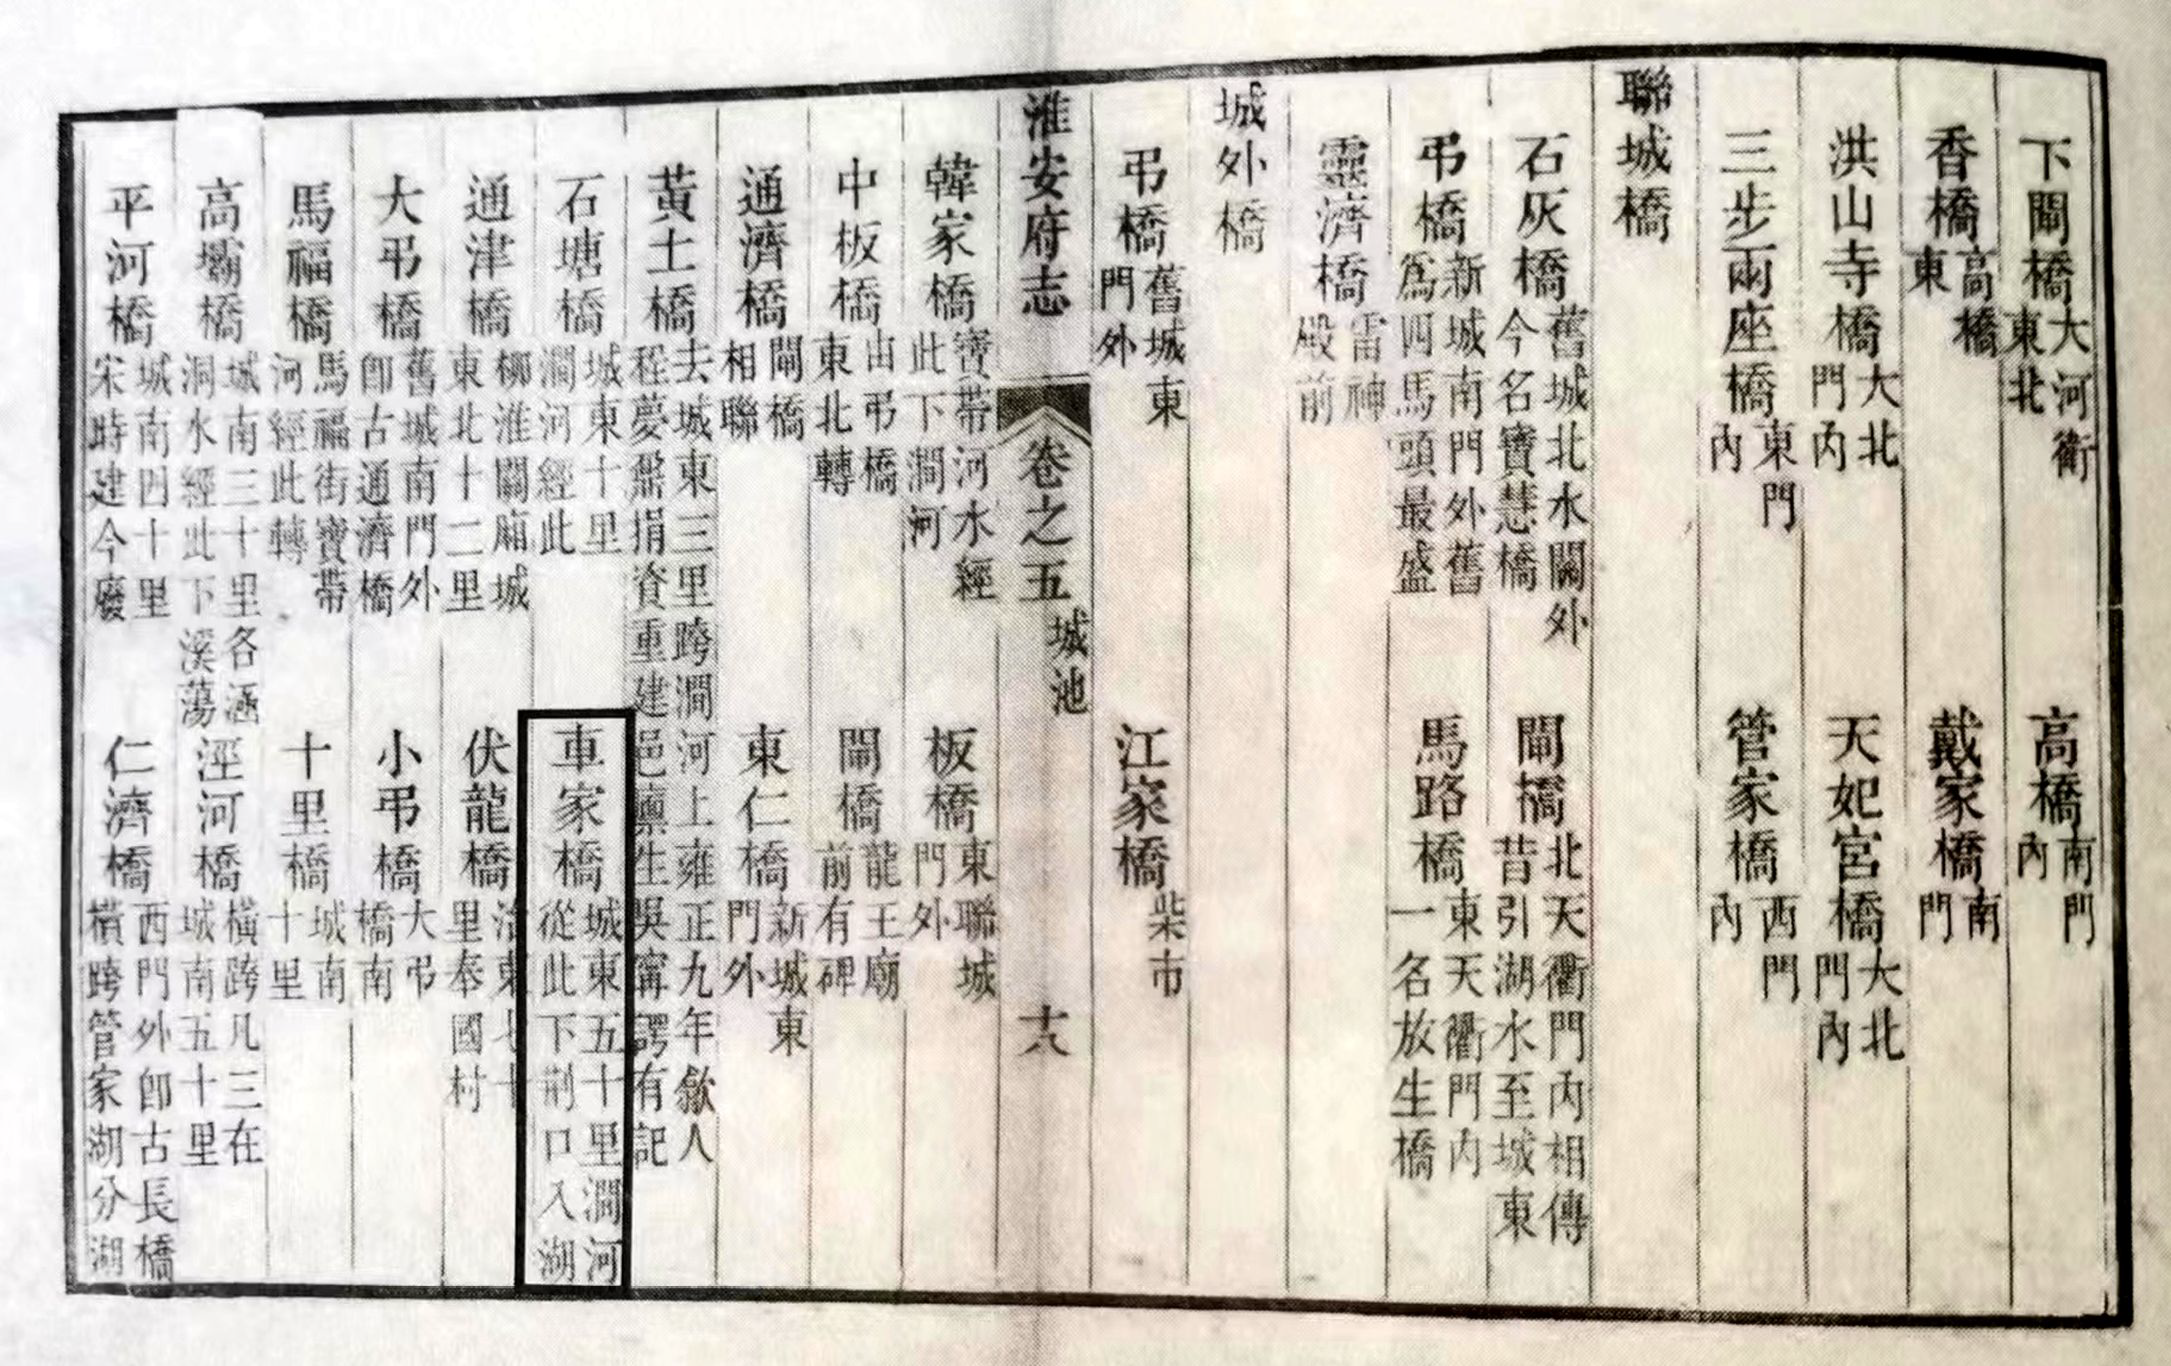 下閘橋大河衛東北
高橋南門內
香橋高橋東
戴家橋南門
洪山寺橋大北門內
天妃宮橋大北門內
三步兩座橋東門內
管家橋西門內
聯城橋
石灰橋舊城北水關外今名寶慧橋
閘橋北天衢門內相傳昔引湖水至城東
弔橋新城南門外舊為四馬頭最盛
馬路橋東天衢門內一名放生橋
靈濟橋雷神殿前
城外橋
弔橋舊城東門外
江家橋柴市
淮安府志
卷之五
城池
十八
韓家橋寶帶河水經此下澗河
板橋東聯城門外
中板橋山弔橋東北轉
閘橋龍王廟前有碑
通濟橋閘橋相聯
東仁橋新城東門外
黃土橋去城東三里跨澗河上雍正九年歙人程夢鼐捐資重建邑廩生吳甯諤有記
石塘橋城東十里澗河經此
車家橋城東五十里澗河從此下荊口入湖
通津橋柳淮關廂城東北十二里
伏龍橋治東七十里奉國村
大弔橋舊城南門外即古通濟橋
小弔橋大弔橋南
馬福橋馬福街寶帶河經此轉
十里橋城南十里
高壩橋城南三十里各涵洞水經此下溪蕩
涇河橋橫跨凡三在城南五十里
平河橋城南四十里宋時建今廢
仁濟橋西門外即古長橋橫跨管家湖分湖